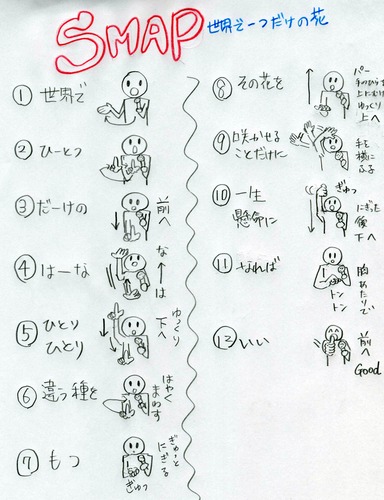 SMAP 世界で一つだけの花
① 世界で
② ひーとつ
③ だーけの
前へ
④ はーな
な
は
⑤ ひとり
ひとり
ゆっくり
下へ
⑥ 違う種を
はやく
まわす
⑦ もつ
ぎゅーと
にぎる
ぎゅっ
⑧ その花を
パー
手のひらを
上にむけ
ゆっくり
上へ
⑨ 咲かせる
ことだけに
手を
横に
ふる
⑩ 一生
懸命に
ぎゅっ
にぎった
後
下へ
⑪ なれば
胸あたりで
トン
トン
⑫ いい
前へ
Good